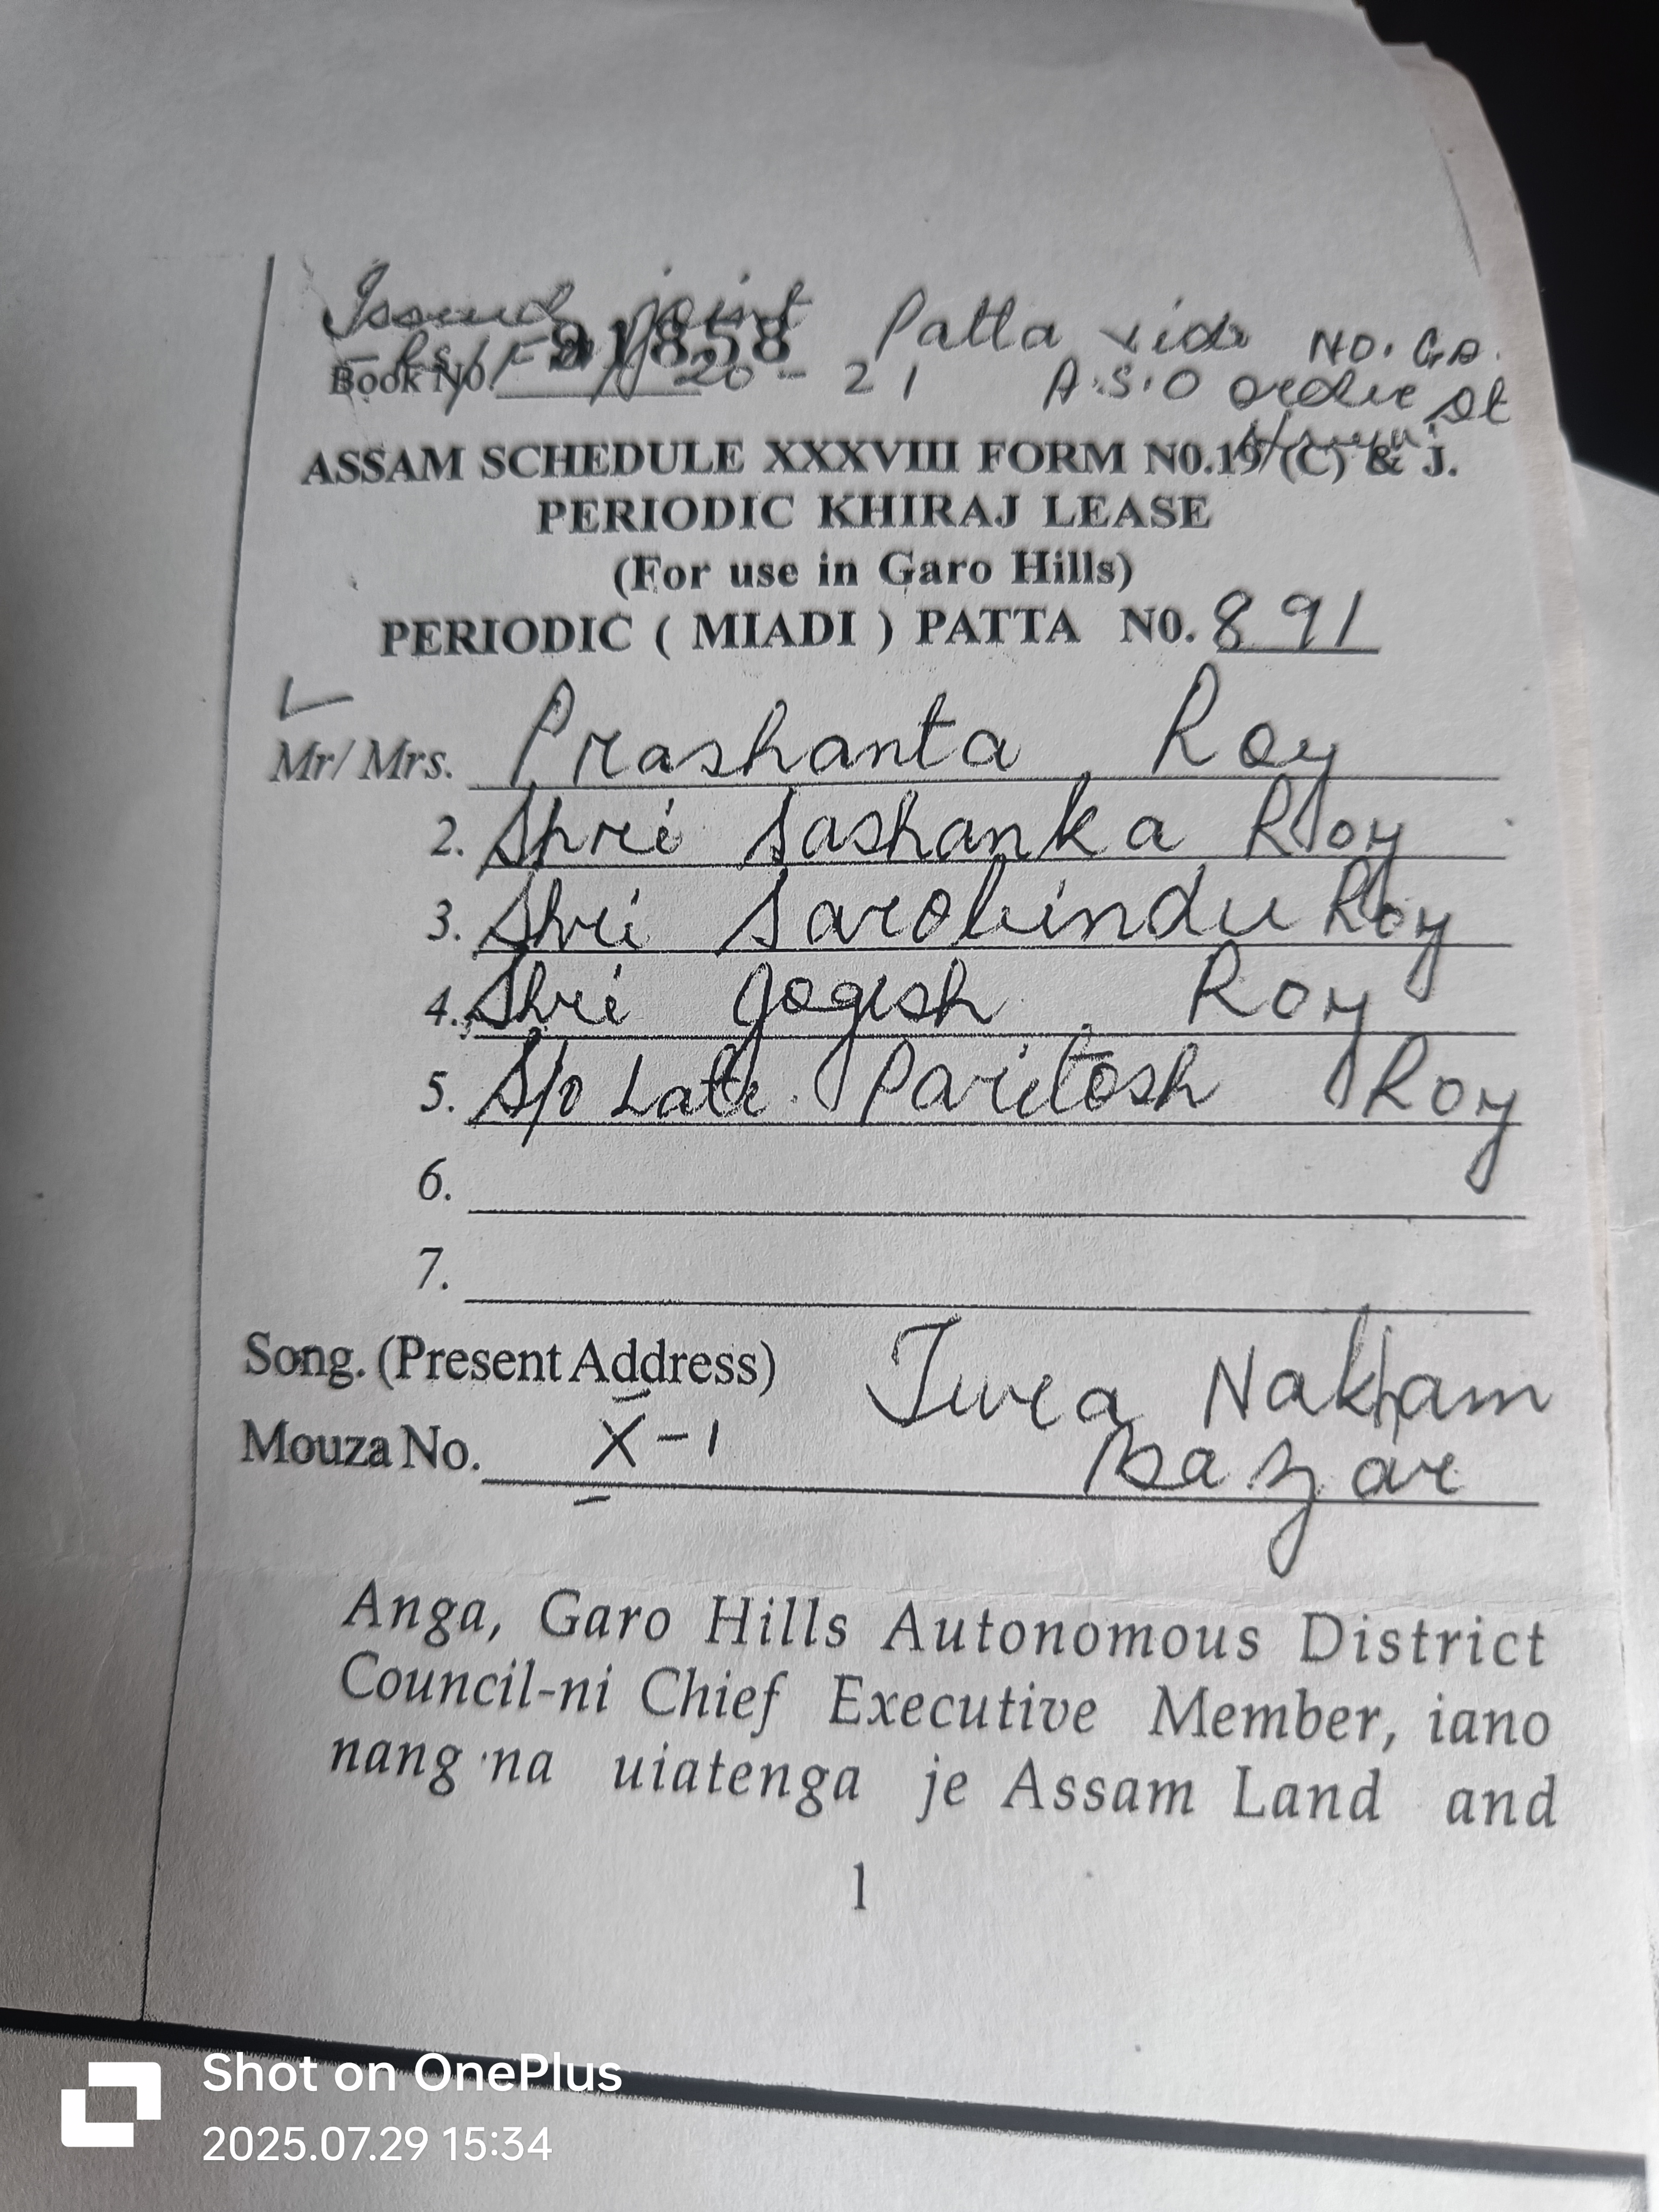 Issued joint Patta vide NO. GA.
91858
Book No. 20-21 A.S.O order Dt
ASSAM SCHEDULE XXXVIII FORM N0.19 (C) & J.
PERIODIC KHIRAJ LEASE
(For use in Garo Hills)
PERIODIC ( MIADI ) PATTA N0. 891
Mr/ Mrs. Prashanta Roy
2. Shri Sashanka Roy
3. Shri Sarobindu Roy
4. Shri Jogesh Roy
5. S/o Late. Paritosh Roy
6.
7.
Song. (Present Address) Tura Nakham
Mouza No. X-1 Bazar
Anga, Garo Hills Autonomous District
Council-ni Chief Executive Member, iano
nang'na uiatenga je Assam Land and
1
Shot on OnePlus
2025.07.29 15:34